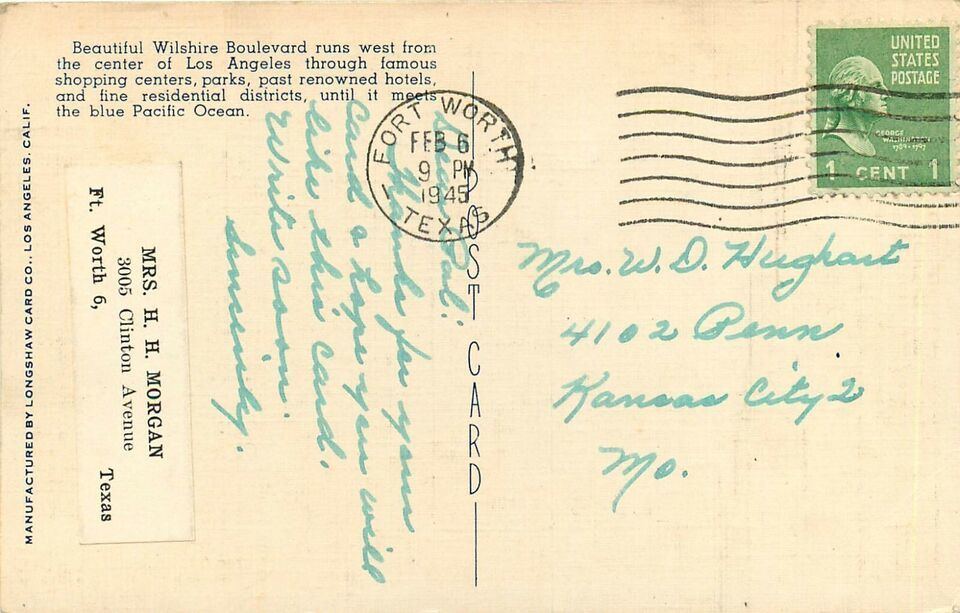 Beautiful Wilshire Boulevard runs west from
the center of Los Angeles through famous
shopping centers, parks, past renowned hotels,
and fine residential districts, until it meets
the blue Pacific Ocean.
MANUFACTURED BY LONGSHAW CARD CO., LOS ANGELES, CALIF.
MRS. H. H. MORGAN
3005 Clinton Avenue
Ft. Worth 6, Texas
Dear Pal:
Thanks for your
card & hope you will
like this card.
Write soon.
Sincerely.
FORT WORTH
FEB 6
9 PM
1945
1 TEXAS
POST CARD
UNITED
STATES
POSTAGE
GEORGE
WASHINGTON
1789-1797
1 CENT 1
Mrs. W. D. Hughart
4102 Penn
Kansas City 2
Mo.